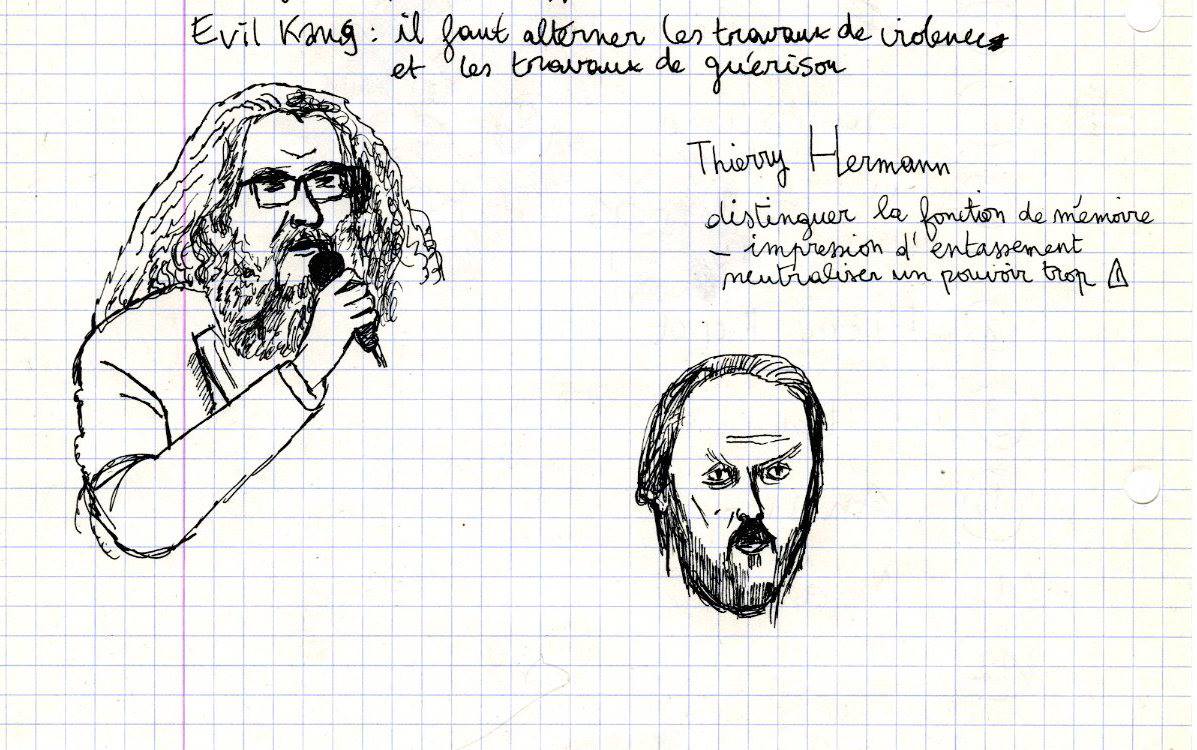 Evil Kang : il faut alterner les travaux de violence
et les travaux de guérison
Thierry Hermann
distinguer la fonction de mémoire
– impression d'entassement
neutraliser un pouvoir trop